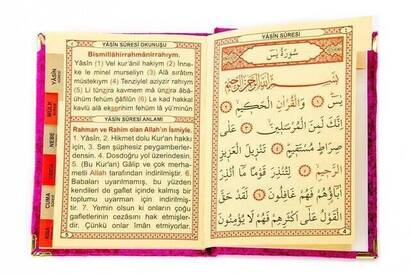 YÂSÎN SÛRESİ OKUNUŞU
Bismillâhirrahmânirrahıym.
Yâsîn (1) Vel kur'ânil hakiym (2) İnne-
ke le minel murseliyn (3) Alâ sırâtım
müstekiym (4) Tenziylel aziyzir rahıym
(5) Li tünzira kavmem mâ ünzira âbâ-
ühüm fehüm gâfilûn (6) Le kad hakkal
kavlü alâ ekserihim fehüm lâ yü'minûn
YÂSÎN SÛRESİ ANLAMI
Rahman ve Rahim olan Allah'ın İsmiyle.
1. Yâsîn, 2. Hikmet dolu Kur'an hakkı
için, 3. Sen şüphesiz peygamberler-
densin. 4. Dosdoğru yol üzerindesin.
5. (Bu Kur'an) Gâlip ve çok merha-
metli Allah tarafından indirilmiştir. 6.
Babaları uyarılmamış, bu yüzden
kendileri de gaflet içinde kalmış bir
toplumu uyarman için indirilmiş-
tir. 7. Yemin olsun ki onların çoğu
gafletlerinin cezasını hak etmişler-
dir. Çünkü onlar îman etmiyorlar.
5
YÂSİN
SÛRESİ
MÜLK
NEBE
CUMA
YÂSÎN SÛRESİ
سُورَةُ يٰسٓ
بِسْمِ اللّٰهِ الرَّحْمٰنِ الرَّحِيمِ
يٰسٓ ﴿١﴾ وَالْقُرْاٰنِ الْحَكِيمِ ﴿٢﴾
اِنَّكَ لَمِنَ الْمُرْسَلِينَ ﴿٣﴾ عَلٰى
صِرَاطٍ مُسْتَقِيمٍ ﴿٤﴾ تَنْزِيلَ الْعَزِيزِ
الرَّحِيمِ ﴿٥﴾ لِتُنْذِرَ قَوْمًا مَٓا اُنْذِرَ
اٰبَٓاؤُهُمْ فَهُمْ غَافِلُونَ ﴿٦﴾ لَقَدْ حَقَّ
الْقَوْلُ عَلٰٓى اَكْثَرِهِمْ فَهُمْ لَا يُؤْمِنُونَ
4